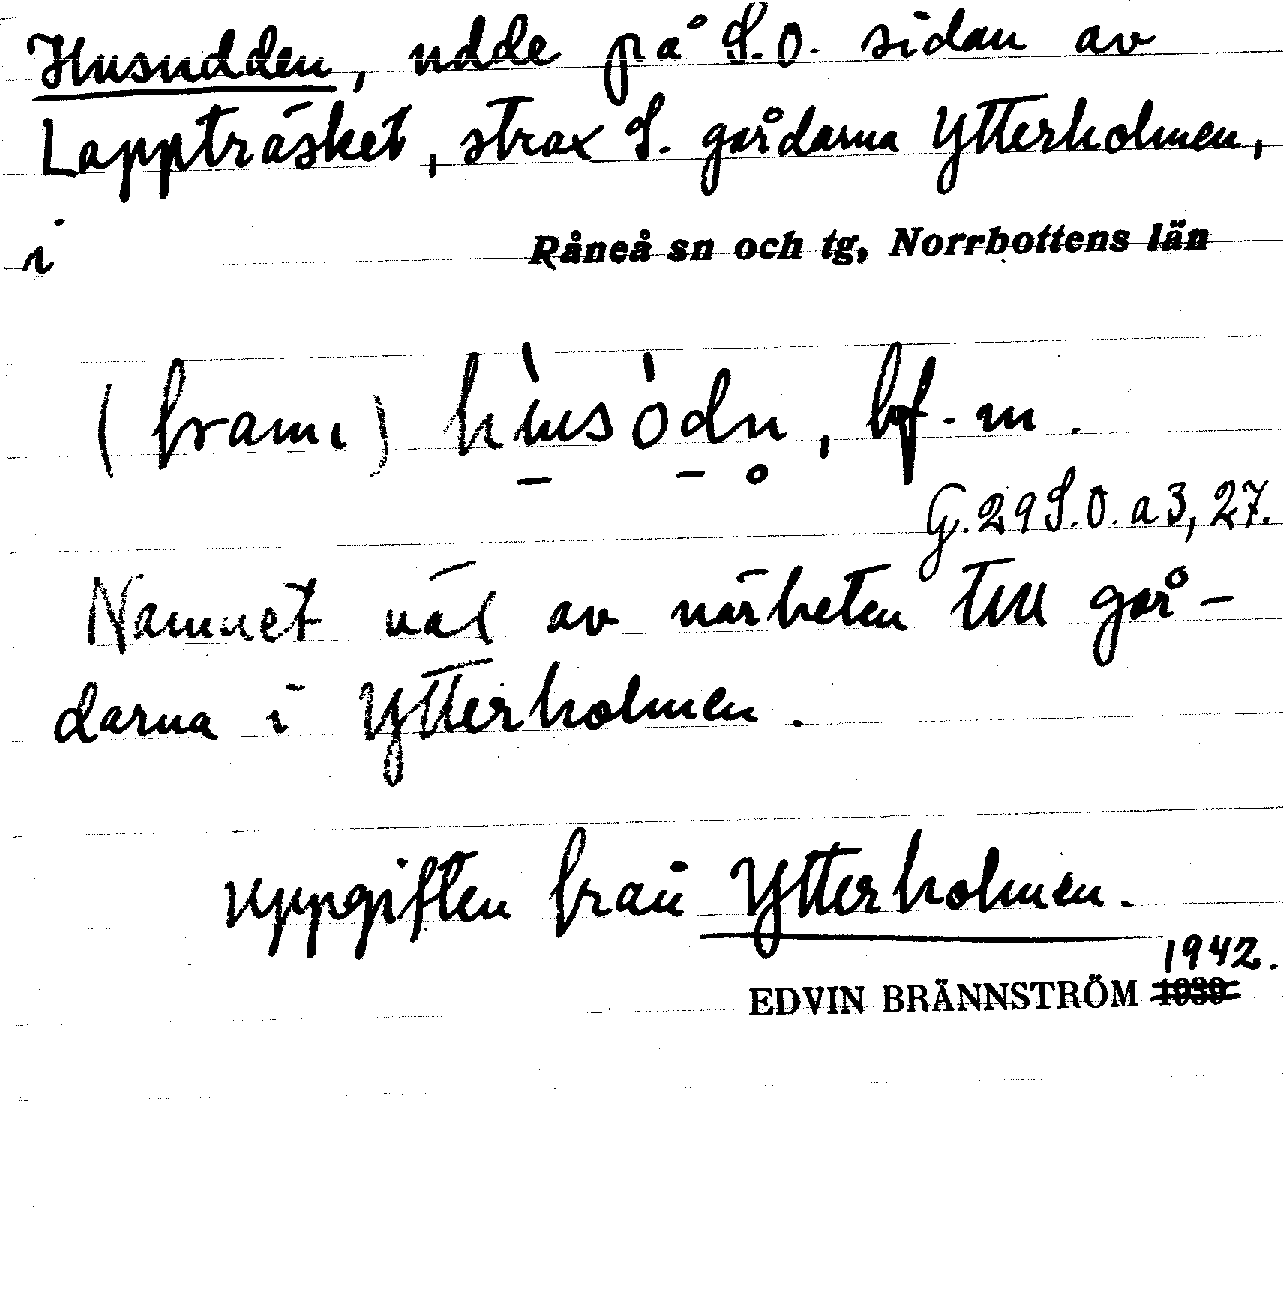 Husudden, udde på S.O. sidan av
Lappträsket, strax S. gårdarna Ytterholmen,
i Råneå sn och tg, Norrbottens län
(framı) husödn, bf. m.
G.29 S.O. a 3, 27.
Namnet väl av närheten till går-
darna i Ytterholmen.
Uppgiften från Ytterholmen.
1942.
EDVIN BRÄNNSTRÖM 1939